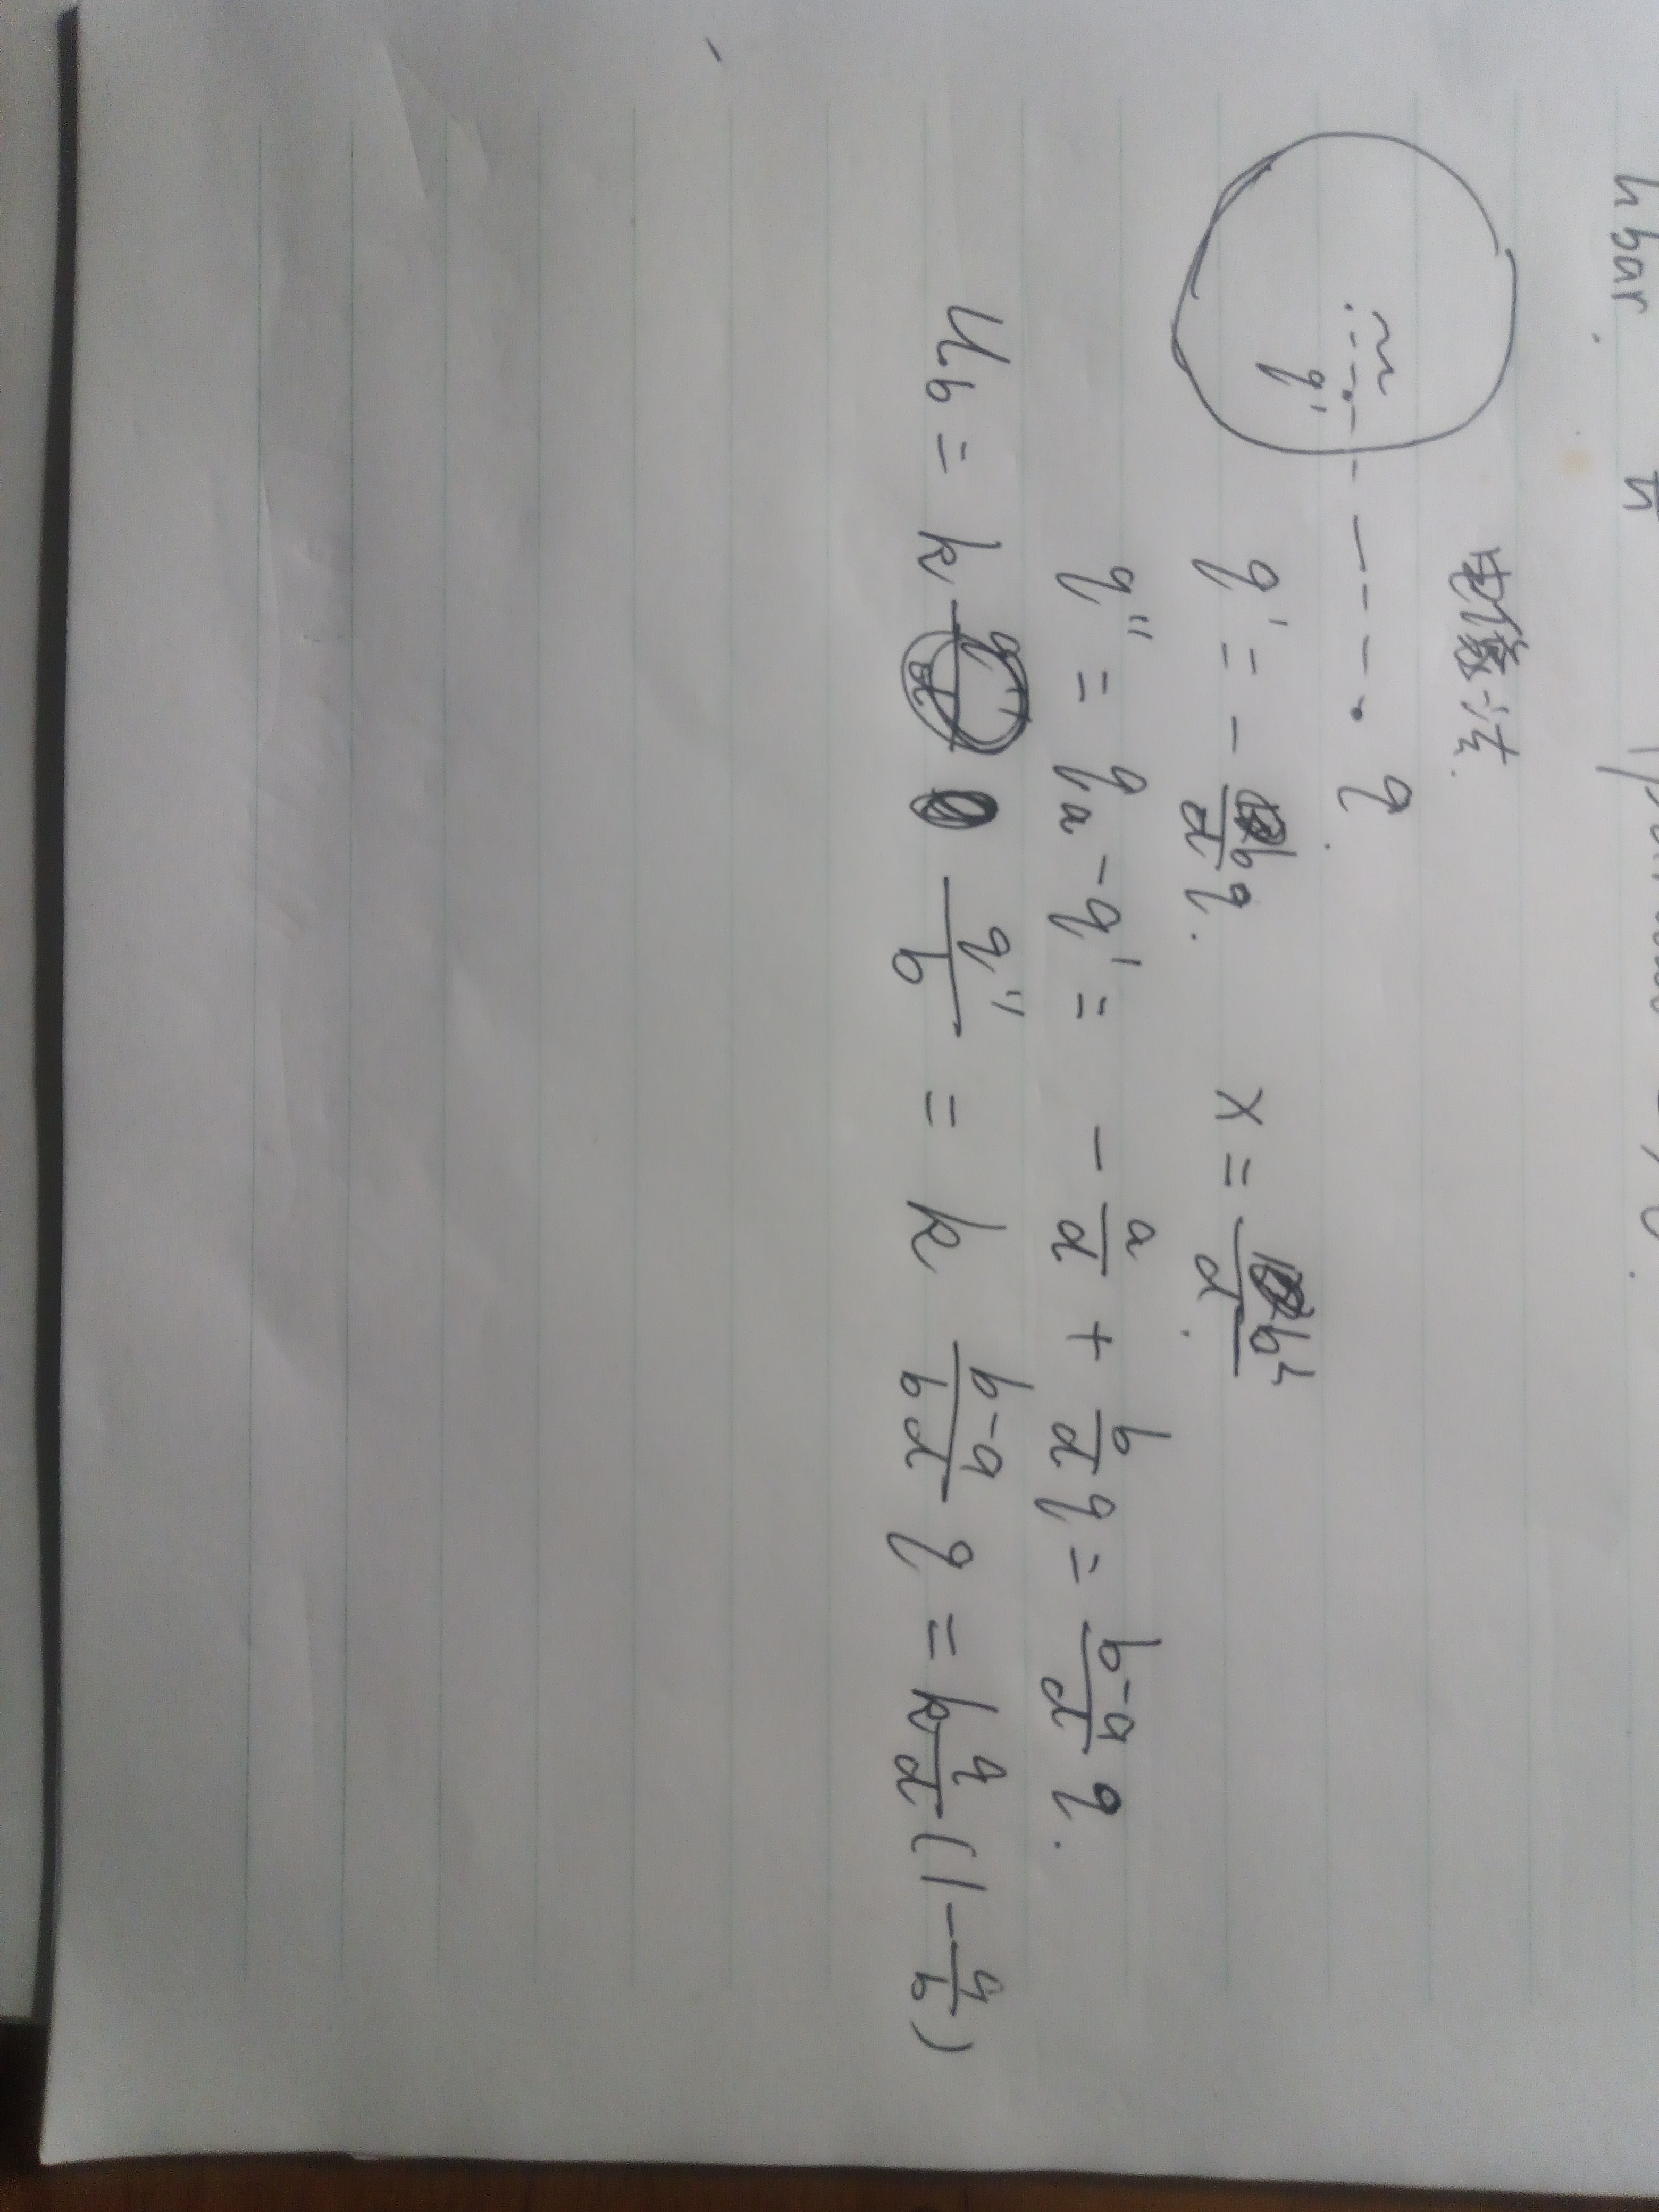 hbar ħ
电像法.
q
x
q'
q' = - b/d q. x = b²/d.
q'' = q_a - q' = - a/d + b/d q = b-a/d q.
U_b = k q''/b = k b-a/bd q = k q/d (1 - a/b)